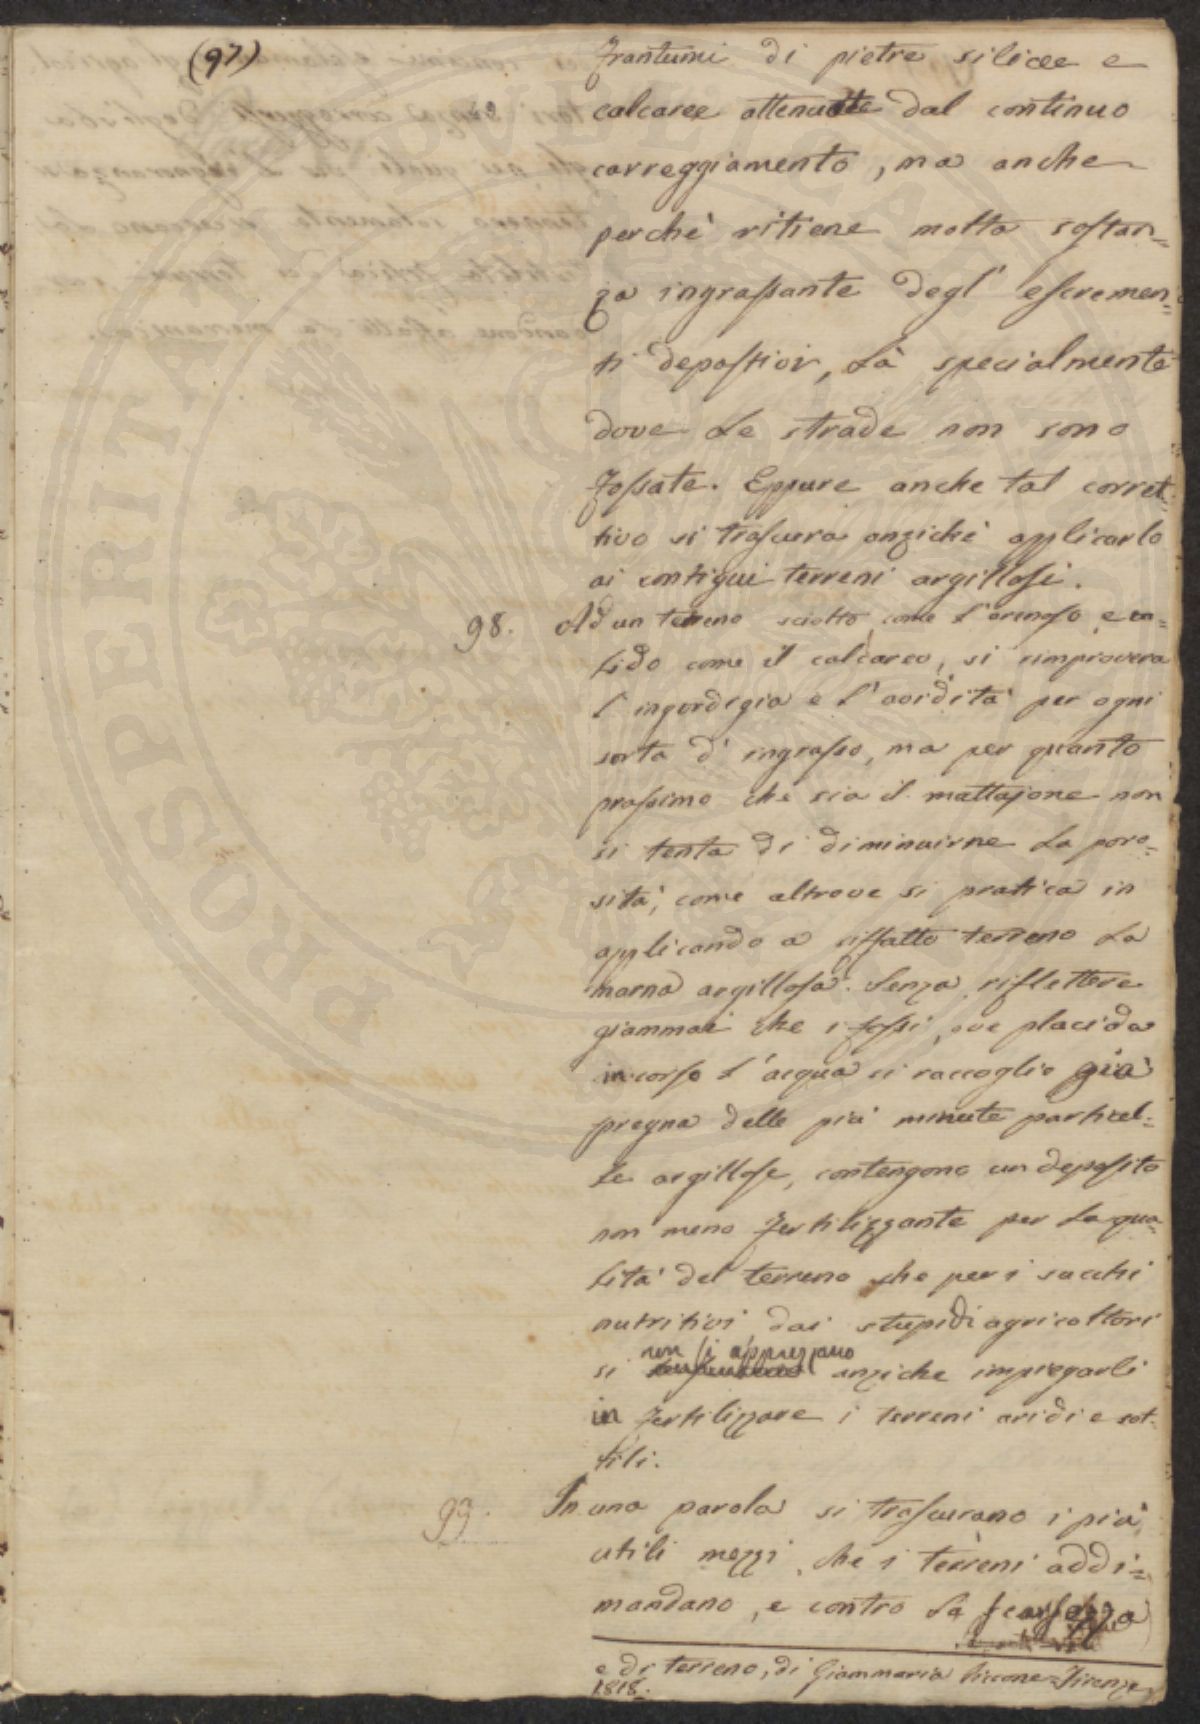 (97)
frantumi di pietre silicee e
calcaree attenuate dal continuo
carreggiamento, ma anche
perchè ritiene molta sostan=
za ingrassante degl' escremen=
ti depostivi, là specialmente
dove le strade non sono
fossate. Eppure anche tal corret=
tivo si trascura anzichè applicarlo
ai contigui terreni argillosi.
98. Ad un terreno sciolto come l'arenoso, e ca=
lido come il calcareo, si rimprovera
l'ingordigia e l'avidità per ogni
sorta d'ingrasso, ma per quanto
prossimo che sia il mattajone non
si tenta di diminuirne la poro=
sità, come altrove si pratica in
applicando a siffatto terreno la
marna argillosa. Senza riflettere
giammai che i fossi, ove placida
in corso l'acqua si raccoglie già
pregna delle più minute particel=
le argillose, contengono un deposito
non meno fertilizzante per la qua=
lità del terreno che per i succhi
nutritivi dai stupidi agricoltori
non si apprezzano
si anziche impiegarli
in fertilizzare i terreni aridi e sot=
tili.
99. In una parola si trascurano i più
utili mezzi, che i terreni addi=
mandano, e contro la scarsezza
e di terreno, di Giammaria Piccone=Firenze
1818.
PROSPERITATI PVBLICAE